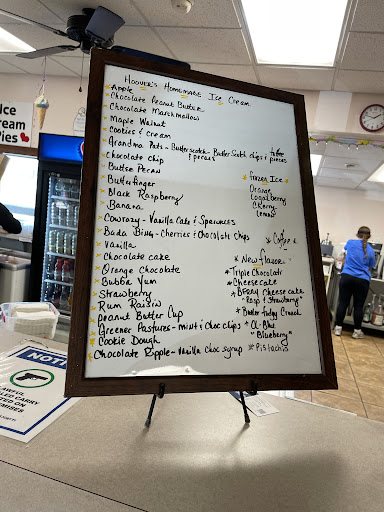 Hoover's Homemade Ice Cream
Apple
Chocolate Peanut Butter
Chocolate Marshmallow
Maple Walnut
Cookies & Cream
Grandma Pats - Butterscotch - Butter Scotch chips & toffee pieces
& pecans
Chocolate chip
Butter Pecan
Butterfinger
Black Raspberry
Banana
Cowtazy - Vanilla Cake &
Bada Bing - Cherries & Chocolate Chips
Vanilla
Chocolate cake
Orange Chocolate
Bubba Yum
Strawberry
Rum Raisin
Peanut Butter Cup
Greener Pastures - mint & choc chips
Cookie Dough
Chocolate Ripple - Vanilla Choc syrup
Frozen Ice
Orange
Loganberry
Cherry
Lemon
Coffee
New flavor
Triple Chocolate
Cheesecake
Berry Cheesecake
- Rasp & Strawberry
Butter Crunch
CL-Blue
"Blueberry"
Pistachio
Ice
Cream
Pies
NOTI
LAWFUL
CEALED CARRY
TED ON
EMISES